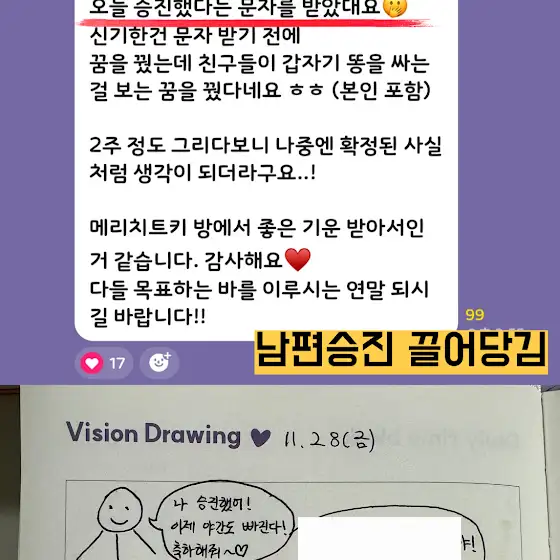 오늘 승진했다는 문자를 받았대요🤭
신기한건 문자 받기 전에
꿈을 꿨는데 친구들이 갑자기 똥을 싸는
걸 보는 꿈을 꿨다네요 ㅎㅎ (본인 포함)
2주 정도 그리다보니 나중엔 확정된 사실
처럼 생각이 되더라구요..!
메리치트키 방에서 좋은 기운 받아서인
거 같습니다. 감사해요♥️
다들 목표하는 바를 이루시는 연말 되시
길 바랍니다!!
99
17
남편승진 끌어당김
Vision Drawing 11.28(금)
나 승진했어!
이제 야간도 빠진다!
축하해줘~♡